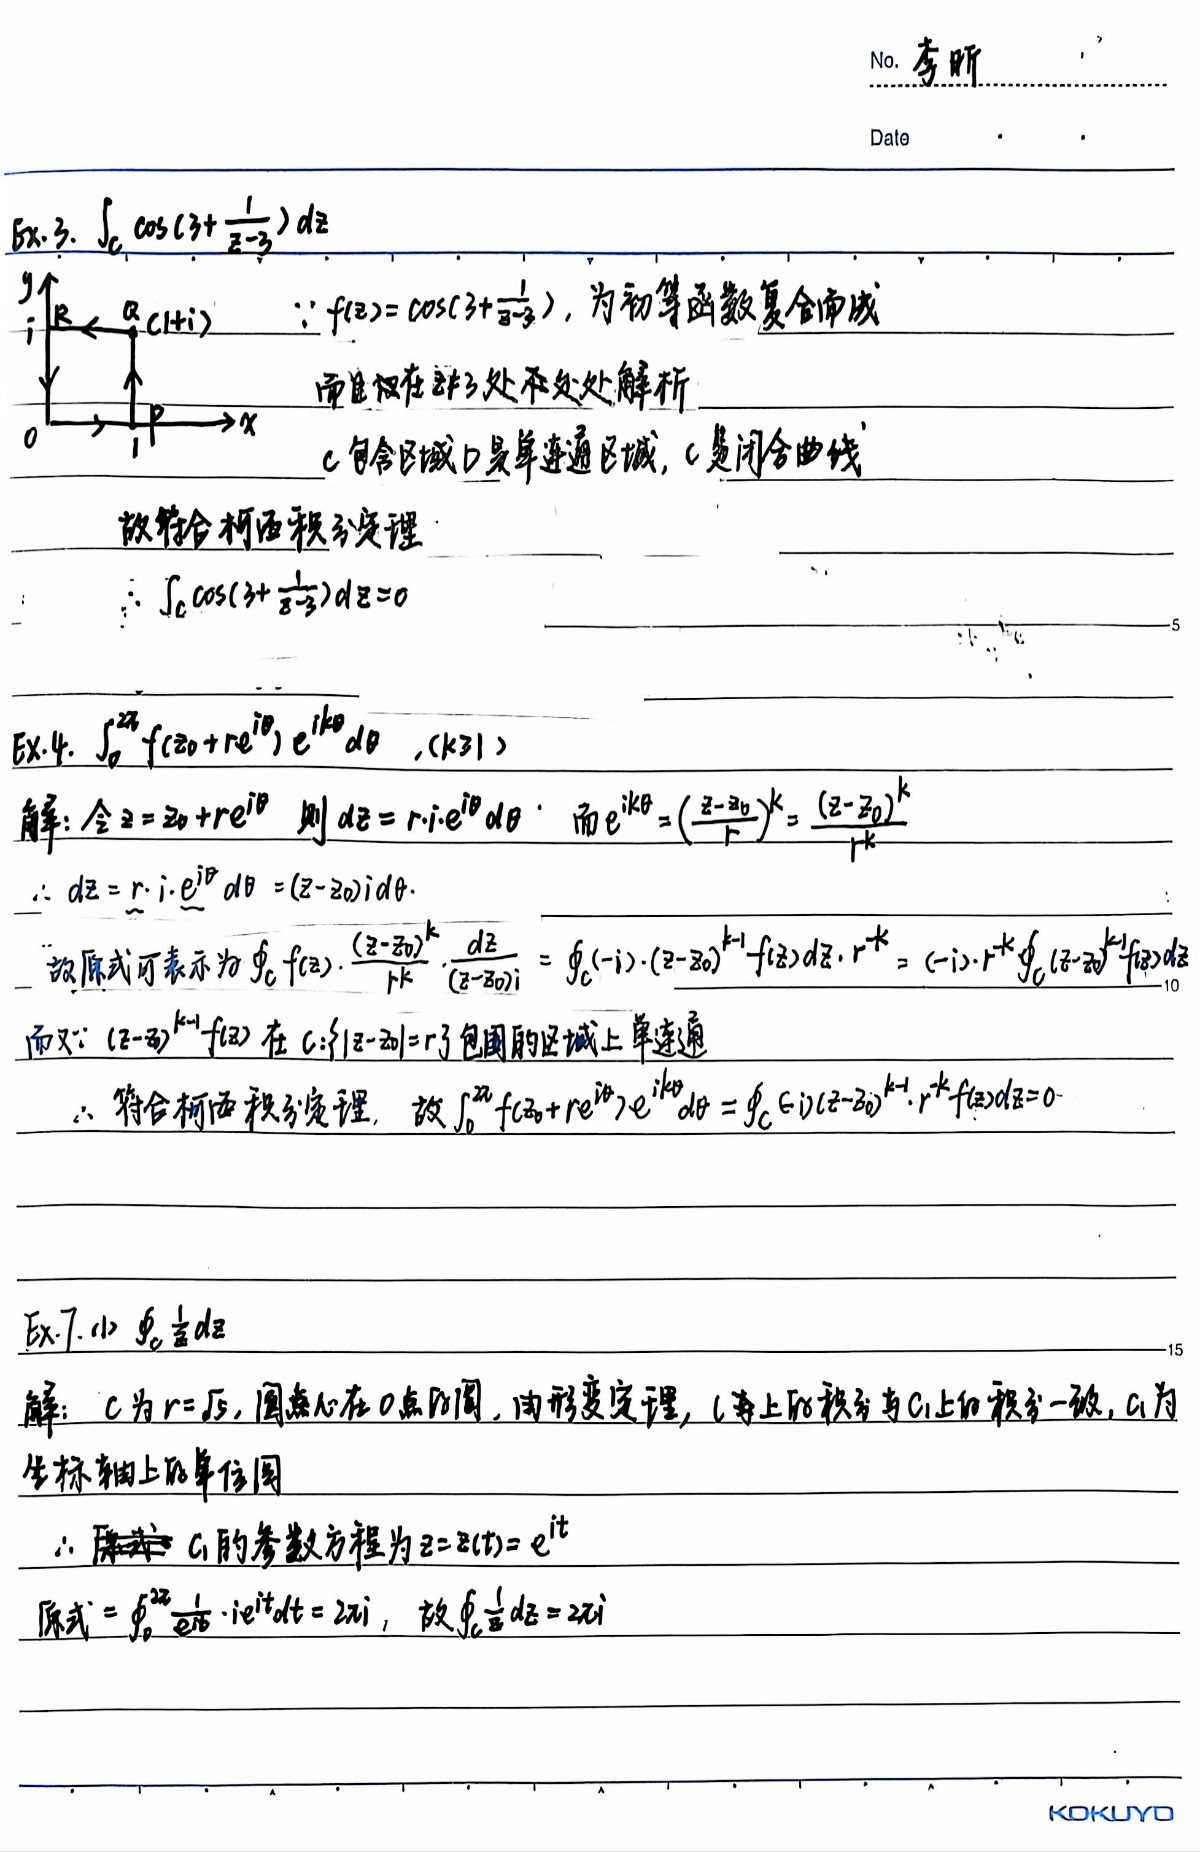 No. 李昕
Date
Ex.3. ∫_C cos(3+1/(z-3))dz
y
i R Q (1+i)
0 1 P x
∵ f(z)=cos(3+1/(z-3)), 为初等函数复合而成
而且仅在z≠3处处处解析
C包含区域D是单连通区域, C是闭合曲线
故符合柯西积分定理
∴ ∫_C cos(3+1/(z-3))dz=0
5
Ex.4. ∫_0^{2π} f(z₀+re^{iθ}) e^{ikθ}dθ ,(k≥1)
解: 令z=z₀+re^{iθ} 则 dz=r·i·e^{iθ}dθ 而e^{ikθ}=((z-z₀)/r)^k=(z-z₀)^k/r^k
∴ dz=r·i·e^{iθ}dθ=(z-z₀)idθ.
故原式可表示为∮_C f(z)·(z-z₀)^k/r^k·dz/((z-z₀)i)=∮_C(-i)·(z-z₀)^{k-1}f(z)dz·r^{-k}=(-i)·r^{-k}∮_C(z-z₀)^{k-1}f(z)dz
10
而又∵ (z-z₀)^{k-1}f(z)在C:{|z-z₀|=r}包围的区域上单连通
∴ 符合柯西积分定理, 故∫_0^{2π} f(z₀+re^{iθ})e^{ikθ}dθ=∮_C(-i)(z-z₀)^{k-1}·r^{-k}f(z)dz=0
Ex.7.(1) ∮_C 1/z dz
15
解: C为r=√5, 圆心在0点的圆, 由形变定理, C上的积分与C₁上的积分一致, C₁为
坐标轴上的单位圆
∴ C₁的参数方程为z=z(t)=e^{it}
原式=∮_0^{2π} 1/e^{it}·ie^{it}dt=2πi, 故∮_C 1/z dz=2πi
KOKUYO